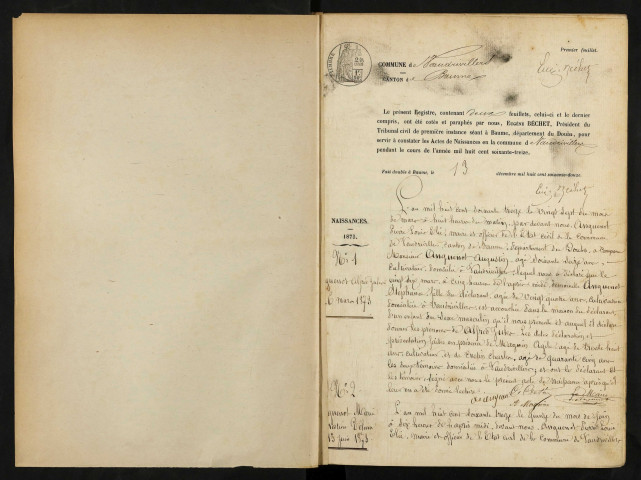 Premier feuillet.
COMMUNE de Vaudrivillers
CANTON de Baume
Le présent Registre, contenant deux feuillets, celui-ci et le dernier
compris, ont été cotés et paraphés par nous, EUGÈNE BÉCHET, Président du
Tribunal civil de première instance séant à Baume, département du Doubs, pour
servir à constater les Actes de Naissances en la commune de Vaudrivillers
pendant le cours de l'année mil huit cent soixante-treize.
Fait double à Baume, le 13 décembre mil huit cent soixante-douze.
NAISSANCES.
1873.
N° 1
Alfred Jules
mars 1873
L'an mil huit cent soixante treize le vingt sept du mois
de mars à huit heures du matin, par devant nous, Anguenot
Pierre Louis Élie, maire et officier de l'État civil de la Commune
de Vaudrivillers canton de Baume, département du Doubs, a comparu
Monsieur Anguenot Augustin, âgé soixante ans
cultivateur, domicilié à Vaudrivillers, lequel nous a déclaré que le
vingt six mars, à cinq heures de l'après midi, Anguenot
Stéphanie, fille du déclarant, âgée de vingt quatre ans, cultivatrice
domiciliée à Vaudrivillers est accouchée dans la maison du déclarant,
d'un enfant du sexe masculin qu'il nous présente et auquel il déclare
donner les prénoms de Alfred Jules. Les dites déclaration et
présentation faites en présence de âgé de trente huit
ans cultivateur, et de Charles, âgé de quarante cinq ans
les deux témoins domiciliés à Vaudrivillers; et ont le déclarant et
les témoins signé avec nous le présent acte de naissance après qu'il
leur en a été donné lecture.
N° 2
juin 1873
L'an mil huit cent soixante treize le quinze du mois de juin
à dix heures de l'après midi, devant nous, Anguenot Pierre Louis
Élie, maire et officier de l'État civil de la Commune de Vaudrivillers